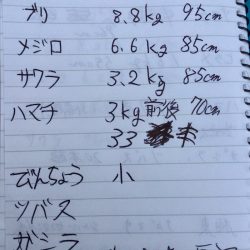 ブリ 8.8kg 95cm
メジロ 6.6kg 85cm
サワラ 3.2kg 85cm
ハマチ 3kg前後 70cm
33
びんちょう 小
ツバス
ガシラ